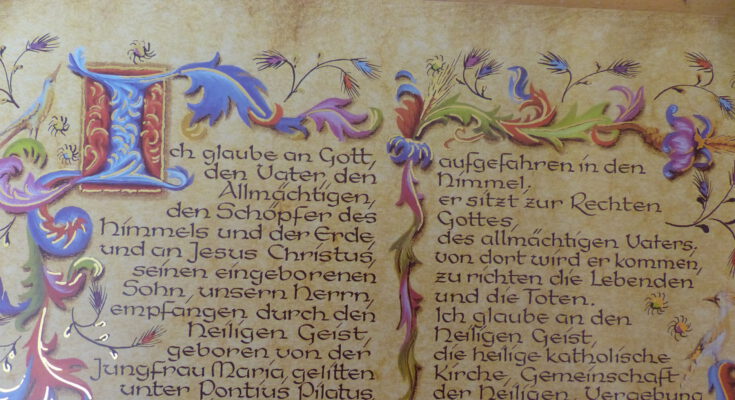 Ich glaube an Gott,
den Vater, den
Allmächtigen,
den Schöpfer des
Himmels und der Erde
und an Jesus Christus,
seinen eingeborenen
Sohn, unsern Herrn,
empfangen durch den
Heiligen Geist,
geboren von der
Jungfrau Maria, gelitten
unter Pontius Pilatus,
aufgefahren in den
Himmel,
er sitzt zur Rechten
Gottes,
des allmächtigen Vaters.
von dort wird er kommen,
zu richten die Lebenden
und die Toten.
Ich glaube an den
Heiligen Geist,
die heilige katholische
Kirche, Gemeinschaft
der Heiligen, Vergebung